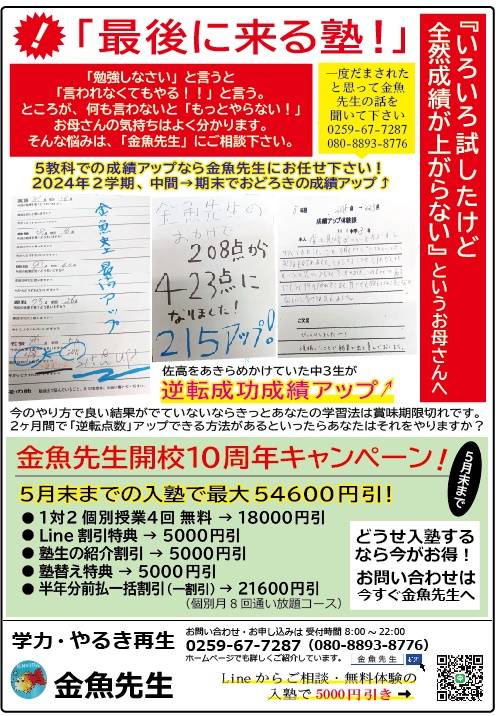 「最後に来る塾!」
『いろいろ試したけど
全然成績が上がらない』というお母さんへ
「勉強しなさい」と言うと
「言われなくてもやる!!」と言う。
ところが、何も言わないと「もっとやらない!」
お母さんの気持ちはよく分かります。
そんな悩みは、「金魚先生」にご相談下さい。
一度だまされた
と思って金魚
先生の話を
聞いて下さい
0259-67-7287
080-8893-8776
5教科での成績アップなら金魚先生にお任せ下さい!
2024年2学期、中間→期末でおどろきの成績アップ⤴
金魚塾 最高アップ
金魚先生の
おかげで
208点が
423点に
なりました!
215アップ!
成績アップ体験談
佐高をあきらめかけていた中3生が
逆転成功成績アップ
今のやり方で良い結果がでていないならきっとあなたの学習法は賞味期限切れです。
2ヶ月間で「逆転点数」アップできる方法があるといったらあなたはそれをやりますか?
金魚先生開校10周年キャンペーン!
5月末まで
5月末までの入塾で最大54600円引!
● 1対2 個別授業4回 無料 → 18000円引
● Line 割引特典 → 5000円引
● 塾生の紹介割引 → 5000円引
● 塾替え特典 → 5000円引
● 半年分前払一括割引(一割引) → 21600円引
(個別月8回通い放題コース)
どうせ入塾する
なら今がお得!
お問い合わせは
今すぐ金魚先生へ
学力・やるき再生
金魚先生
お問い合わせ・お申し込みは 受付時間 8:00 ~ 22:00
0259-67-7287(080-8893-8776)
ホームページでも詳しくご紹介しています。
金魚先生
Lineからご相談・無料体験の
入塾で5000円引き →